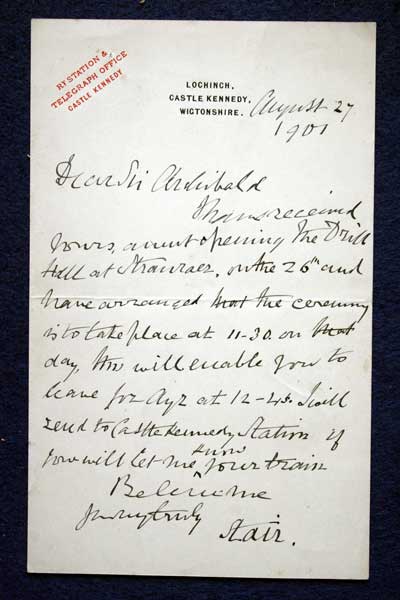 RY STATION &
TELEGRAPH OFFICE
CASTLE KENNEDY
LOCHINCH,
CASTLE KENNEDY,
WIGTONSHIRE.
August 27
1901
Dear Sir Archibald
I have received
yours, anent opening the Drill
Hall at Stranraer, on the 26th and
have arranged that the ceremony
is to take place at 11-30. on that
day, this will enable you to
leave for Ayr at 12-45. I will
send to Castle Kennedy Station if
you will let me know your train
Believe me
yours truly
Stair.